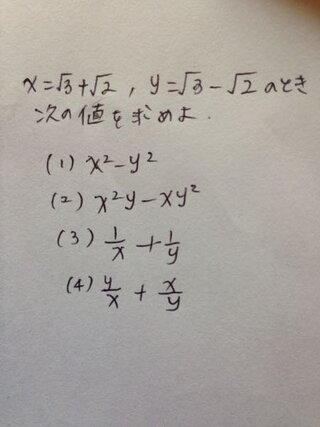 x=√3+√2 , y=√3-√2 のとき
次の値を求めよ.
(1) x²-y²
(2) x²y-xy²
(3) 1/x + 1/y
(4) y/x + x/y